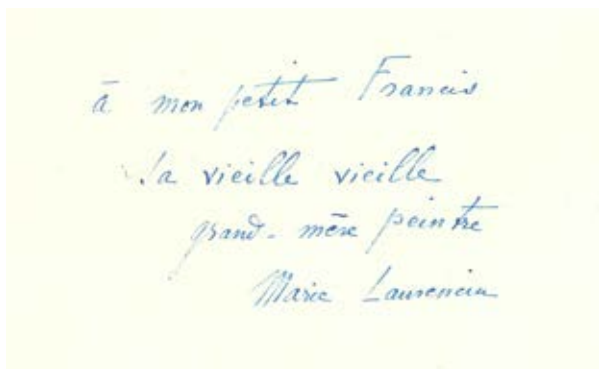 à mon petit Francis
sa vieille vieille
grand-mère peintre
Marie Laurencin